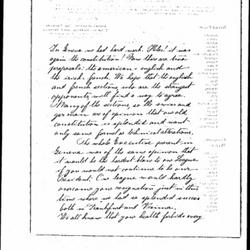 In Geneva we had hard work. Helen! it was
again the constitution! Now there are two
proposals: the american - english and
the irish french. We hope that the english
and french sections, who are the strongest
opponents will find a way to agree.
Many of the sections, so the swiss and
german are of opinion that our old
constitution is splendid and want
only some formal technical alterations.
The whole Executive present in
Geneva was of the same opinion that
it would be the hardest blow to our League
if you would not continue to be our
President. Our League would hardly
overcome your resignation just in this
time where we had so splendid success
both in Frankfurt and Vienna.
We all know that your health forbids every